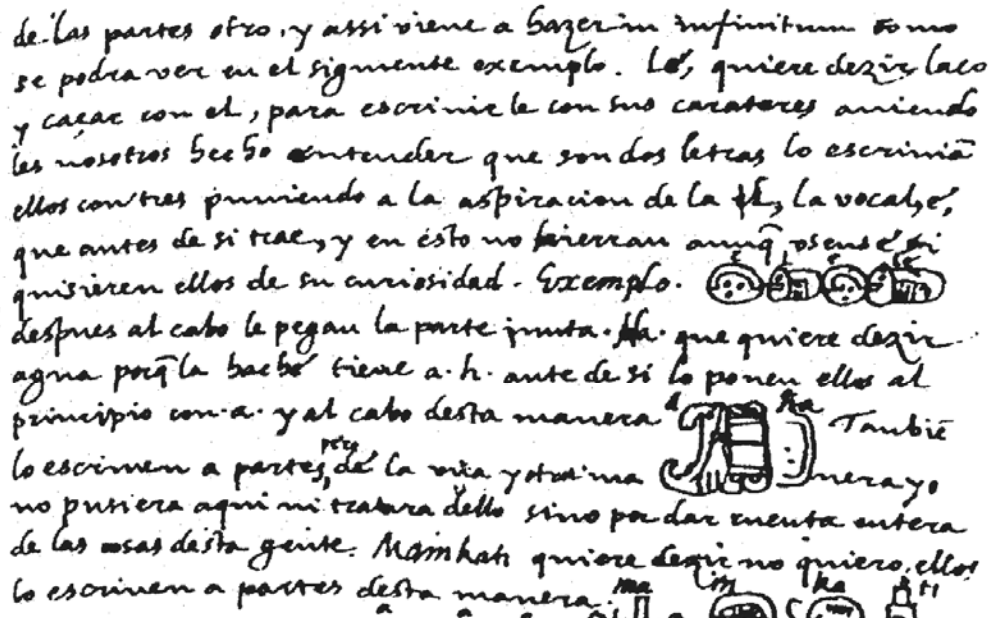 de las partes otro, y assi viene a hazer in infinitum como
se podra ver en el siguiente exemplo. Lé, quiere dezir laço
y caçar con el, para escrivirle con sus carateres aviendo
les nosotros hecho entender que son dos letras lo escrivian
ellos con tres puniendo a la aspiracion de la l, la vocal, é,
que antes de si trae, y en esto no hierran aunq̃ usense si
quisieren ellos de su curiosidad. Exemplo. e l e le
despues al cabo le pegan la parte junta. Ha. que quiere dezir
agua porq̃ la haché tiene a. h. ante de si lo ponen ellos al
principio con. a. y al cabo desta manera a ha Tambiē
lo escriven a partes, pero de la una y otra ma nera yo
no pusiera aqui ni tratara dello sino por dar cuenta entera
de las cosas desta gente. Mainkati quiere dezir no quiero, ellos
lo escriven a partes desta manera. ma i n ka ti